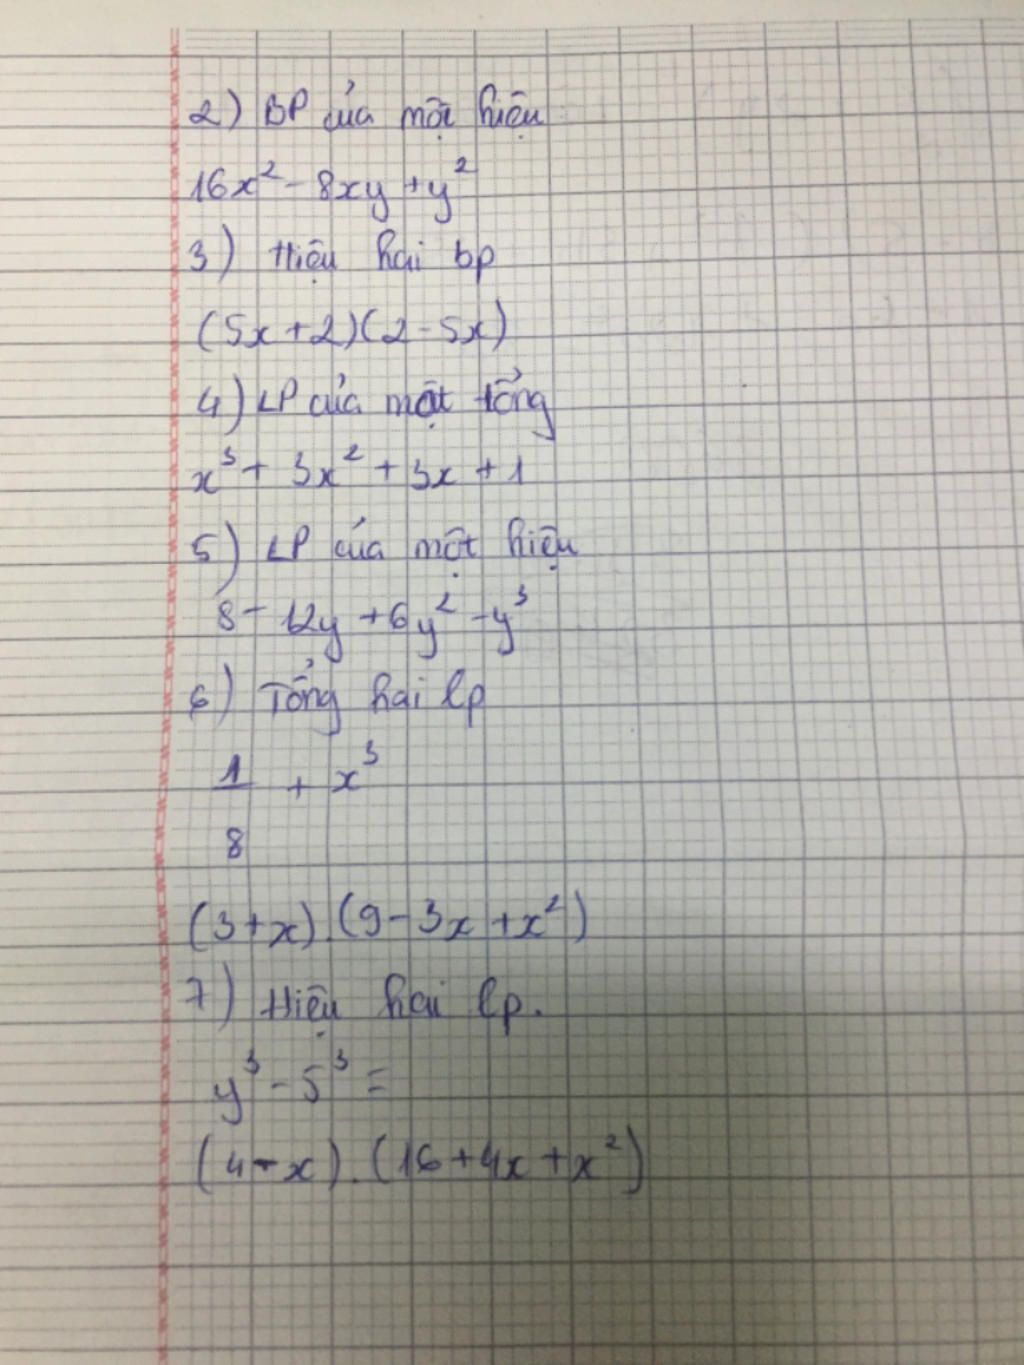 2) BP của một hiệu
16x² - 8xy + y²
3) Hiệu hai bp
(5x + 2)(2 - 5x)
4) LP của một tổng
x³ + 3x² + 3x + 1
5) LP của một hiệu
8 - 12y + 6y² - y³
6) Tổng hai lp
1/8 + x³
(3 + x).(9 - 3x + x²)
7) Hiệu hai lp.
y³ - 5³ =
(4 - x).(16 + 4x + x²)